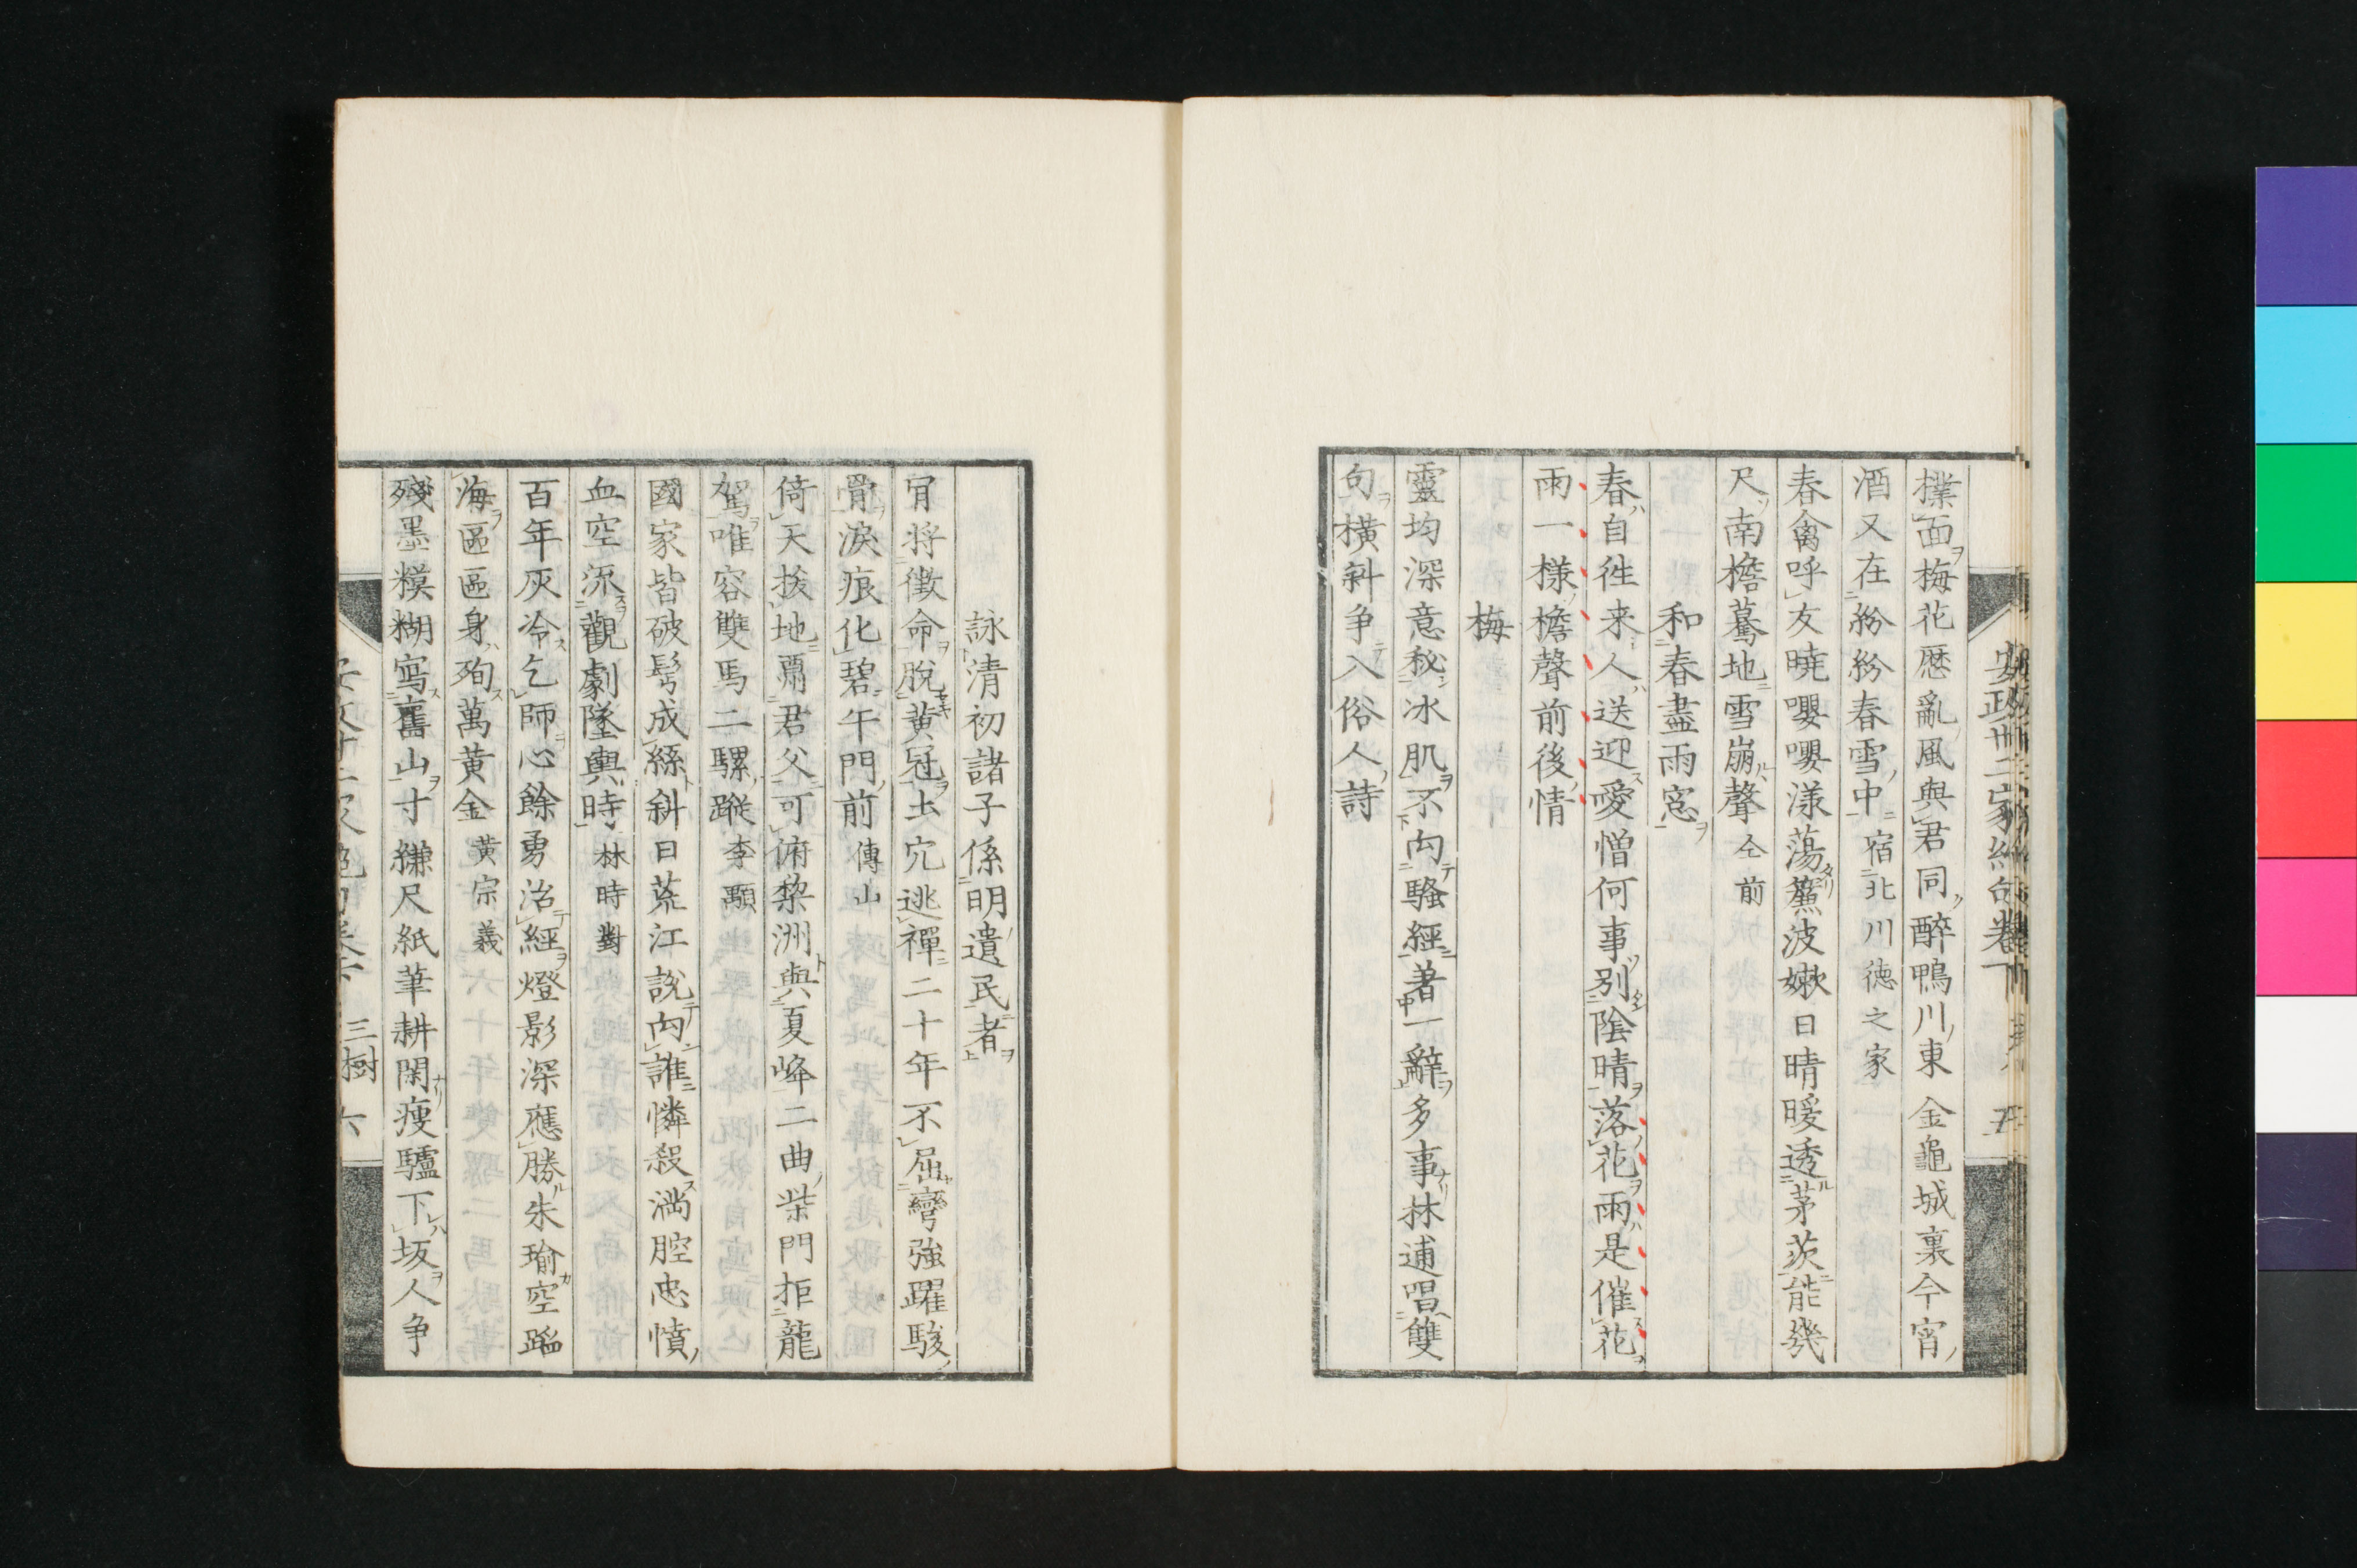 撲面梅花歴亂風與君同醉鴨川東金龜城裏今宵
酒又在紛紛春雪中 宿北川徳之家
春禽呼友曉嚶嚶漾蕩簷波嫩日晴暖透茅茨能幾
尺南檐驀地雪崩聲 仝前
和春盡雨窓
春自徃来人送迎愛憎何事別陰晴落花雨是催花
雨一樣檐聲前後情
梅
靈均深意秘氷肌不向騷經著一辭多事林逋唱雙
句横斜争入俗人詩
詠清初諸子係明遺民者
肎将徴命脱黄冠土穴逃禪二十年不屈彎強躍駿
骨淚痕化碧午門前 傳山
倚天拔地兩君父可俯黎洲與夏峰二曲柴門拒龍
駕唯容雙馬二騾蹤 李顒
國家皆破髩成絲斜日荒江説向誰憐殺満腔忠憤
血空流觀劇墜輿時 林時對
百年灰冷乞師心餘勇治經燈影深應勝朱瑜空蹈
海區區身殉萬黄金 黄宗羲
殘墨糢糊寫舊山寸縑尺紙筆耕閑痩驢下坂人争
三樹 六